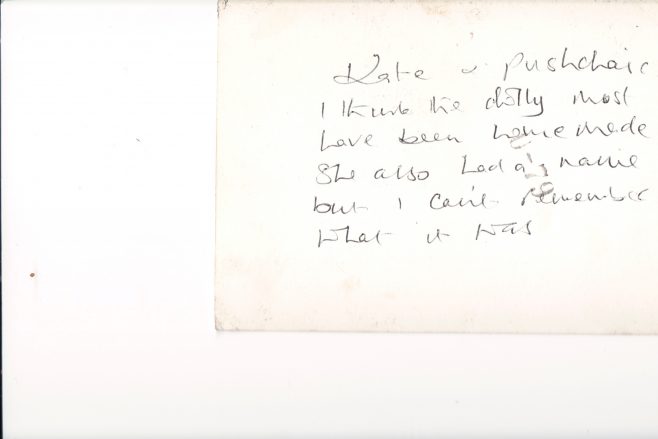 Kate & Pushchair
I think the dolly most
have been home made
She also had a name
but I can't remember
what it was